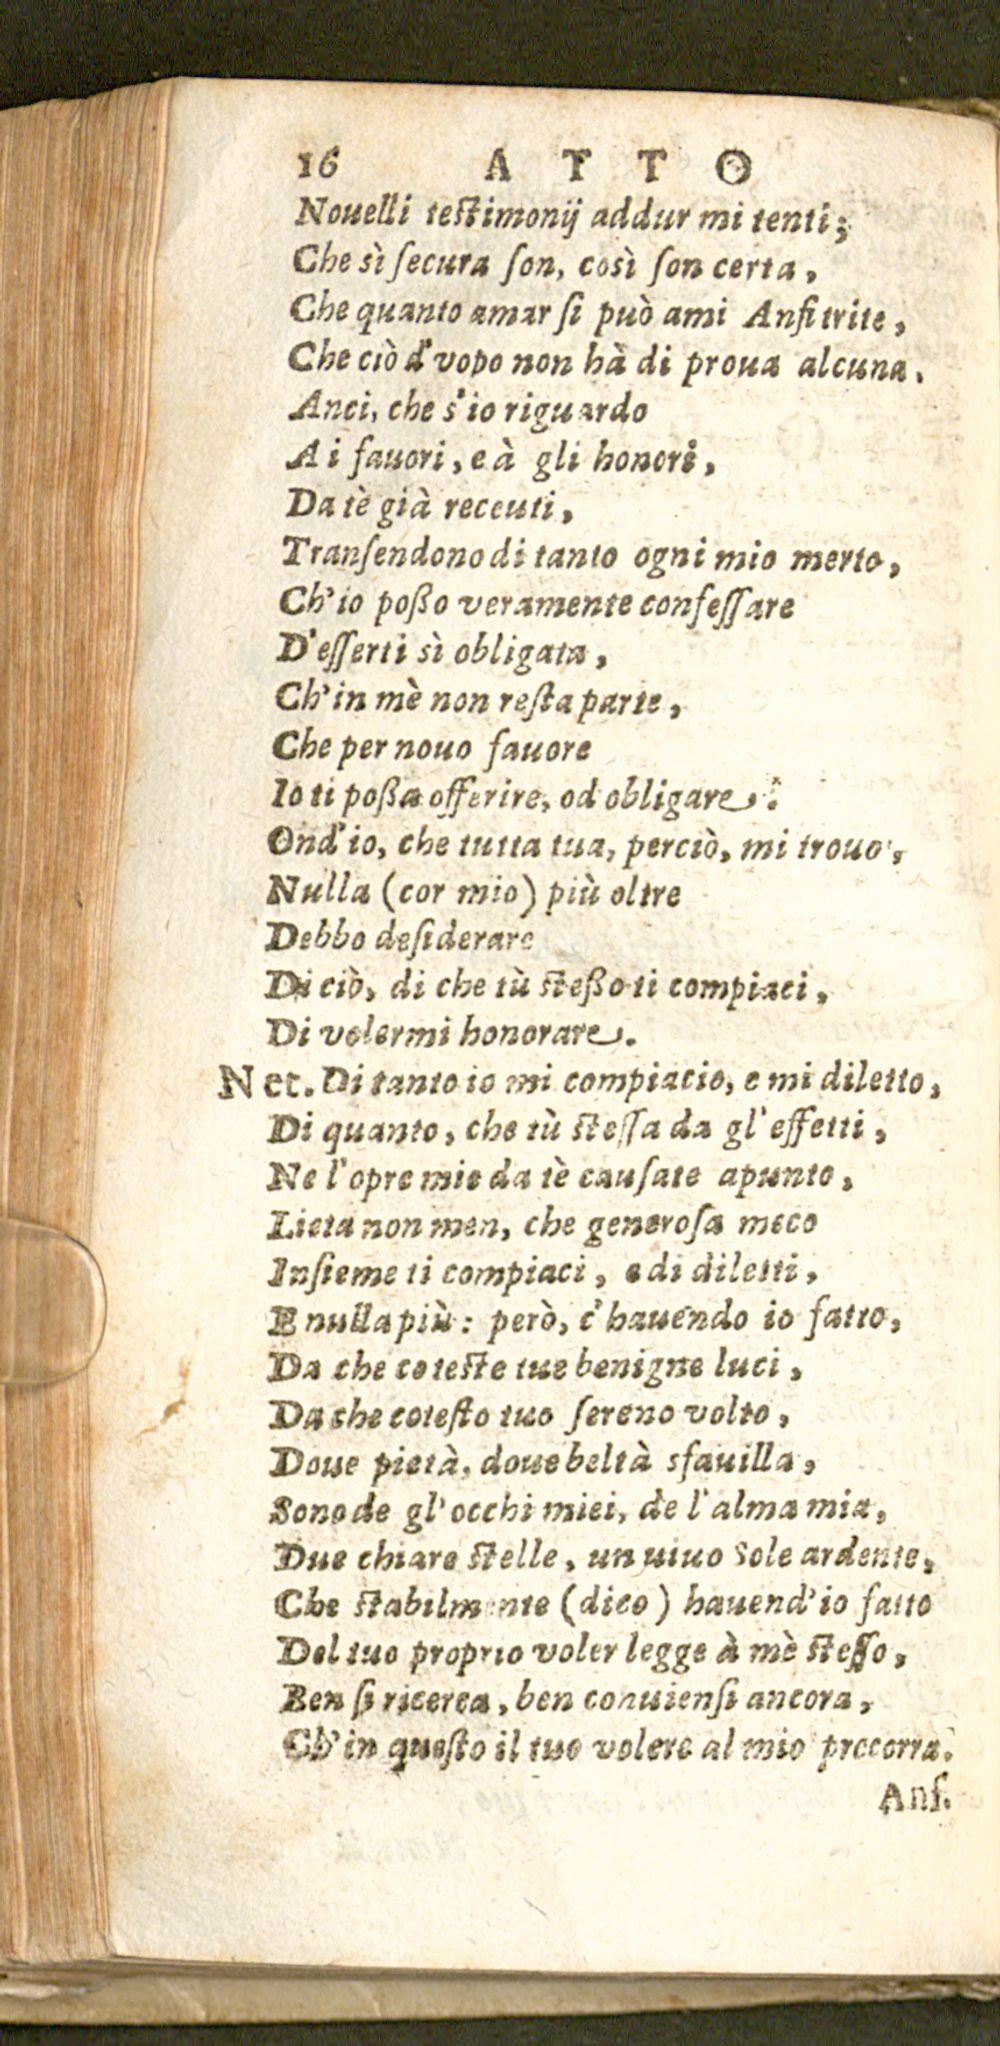 16 ATTO
Nouelli testimonij addur mi tenti;
Che sì ſecura ſon, così ſon certa,
Che quanto amar ſi può ami Anfitrite,
Che ciò d'vopo non hà di proua alcuna.
Anci, che s'io riguardo
A i fauori, e à gli honori,
Da tè già receuti,
Tranſendono di tanto ogni mio merto,
Ch'io poßo veramente confeſſare
D'eſſerti sì obligata,
Ch'in mè non reſta parte,
Che per nouo fauore
Io ti poßa offerire, od obligare.
Ond'io, che tutta tua, perciò, mi trouo,
Nulla (cor mio) più oltre
Debbo deſiderare
Di ciò, di che tù steßo ti compiaci,
Di volermi honorare.
Net. Di tanto io mi compiacio, e mi diletto,
Di quanto, che tù steſſa da gl'effetti,
Ne l'opre mie da tè cauſate apunto,
Lieta non men, che generoſa meco
Inſieme ti compiaci, e di diletti,
E nulla più: però, c'hauendo io fatto,
Da che coteste tue benigne luci,
Da che coteſto tuo ſereno volto,
Doue pietà, doue beltà sfauilla,
Sono de gl'occhi miei, de l'alma mia,
Due chiare stelle, un uiuo Sole ardente,
Che stabilmente (dico) hauend'io fatto
Del tuo proprio voler legge à mè steſſo,
Ben ſi ricerca, ben conuienſi ancora,
Ch'in queſto il tuo volere al mio precorra.
Anſ.